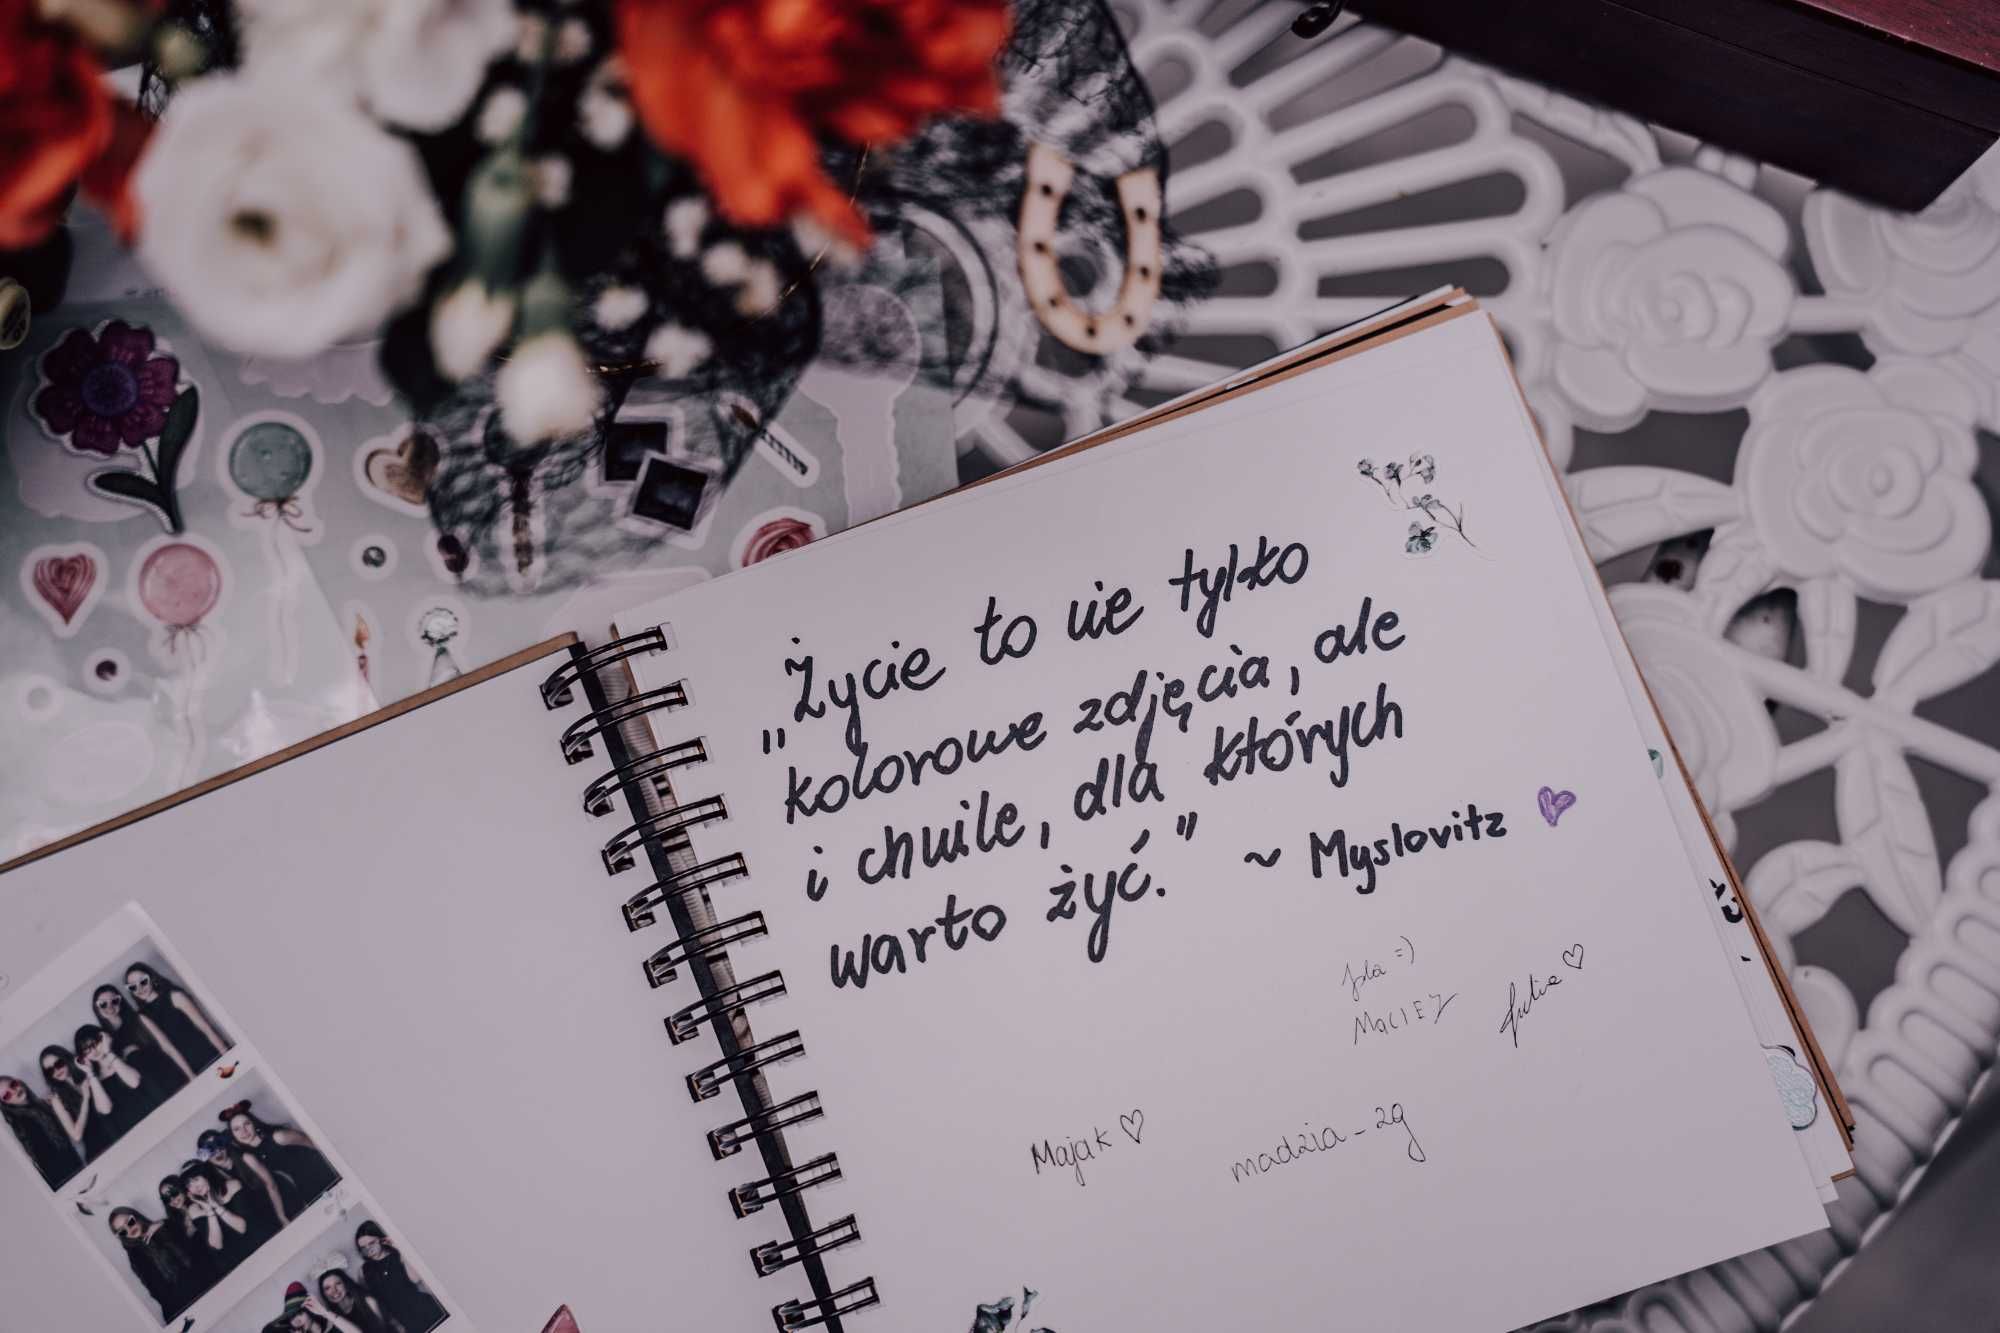 „Życie to nie tylko
kolorowe zdjęcia, ale
i chwile, dla których
warto żyć.” ~ Myslovitz
Jola =)
MACIEJ
Julia
Majak
madzia_2g